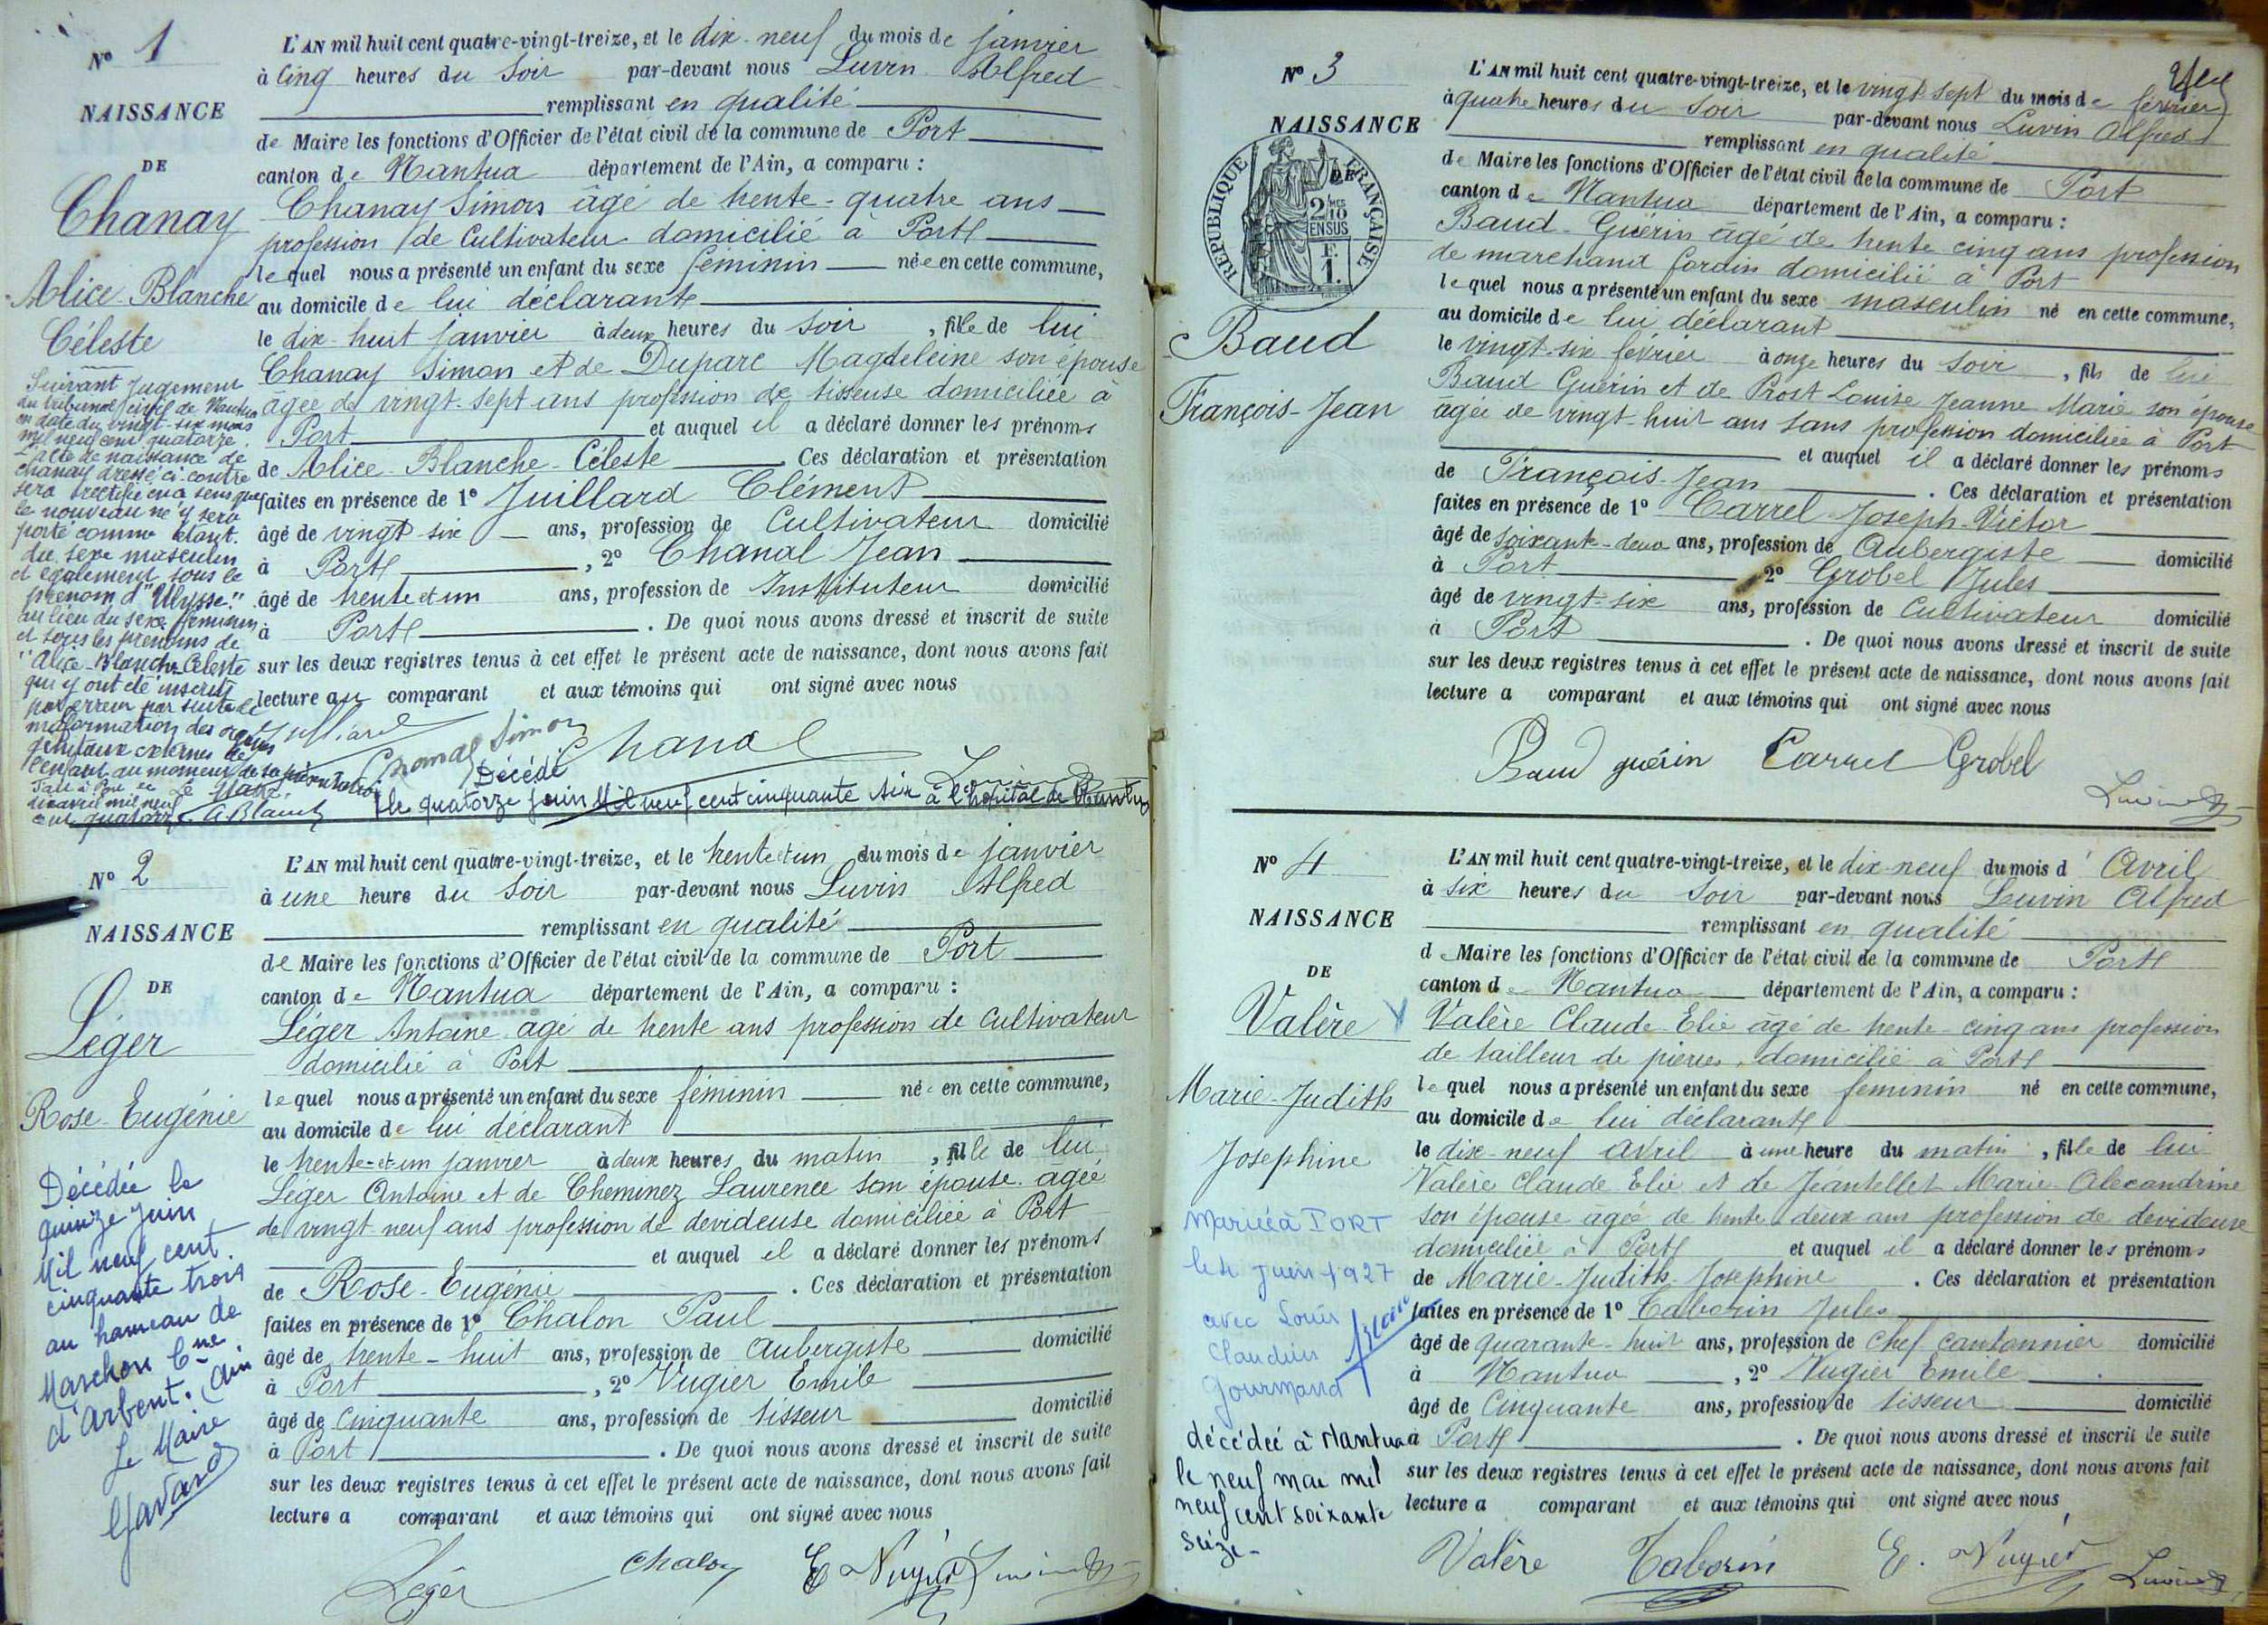 N° 1
NAISSANCE
DE
Chanay
Alice-Blanche
Céleste
Suivant Jugement
du tribunal civil de Nantua
en date du vingt-six mars
mil neuf cent quatorze.
L'acte de naissance de
Chanay dressé ci-contre
sera rectifié en ce sens que
le nouveau né y sera
porté comme étant
du sexe masculin
et également sous le
prénom d'"Ulysse"
au lieu du sexe féminin
et sous les prénoms de
"Alice-Blanche-Céleste
qui y ont été inscrits
par erreur par suite de
malformation des organes
génitaux externes de
l'enfant au moment de sa présentation
Le Maire
L'AN mil huit cent quatre-vingt-treize, et le dix-neuf du mois de janvier
à Cinq heures du Soir par-devant nous Luvin Alfred
remplissant en qualité
de Maire les fonctions d'Officier de l'état civil de la commune de Port
canton de Nantua département de l'Ain, a comparu :
Chanay Simon âgé de trente-quatre ans
profession de Cultivateur domicilié à Port
lequel nous a présenté un enfant du sexe féminin née en cette commune,
au domicile de lui déclarant
le dix-huit janvier à deux heures du Soir, fille de lui
Chanay Simon et de Duparc Magdeleine son épouse
âgée de vingt-sept ans profession de tisseuse domiciliée à
Port et auquel il a déclaré donner les prénoms
de Alice-Blanche-Céleste Ces déclaration et présentation
faites en présence de 1° Juillard Clément
âgé de vingt-six ans, profession de Cultivateur domicilié
à Port, 2° Chanal Jean
âgé de trente et un ans, profession de Instituteur domicilié
à Port. De quoi nous avons dressé et inscrit de suite
sur les deux registres tenus à cet effet le présent acte de naissance, dont nous avons fait
lecture au comparant et aux témoins qui ont signé avec nous
Juillard Chanay Simon Chanal
Décédé
le quatorze juin Mil neuf cent cinquante six à l'hôpital de Nantua
N° 2
NAISSANCE
DE
Léger
Rose-Eugénie
Décédée le
quinze juin
Mil neuf cent
cinquante trois
au hameau de
Marchon Cne
d'Arbent. (Ain
Le Maire
Gavard
L'AN mil huit cent quatre-vingt-treize, et le trente et un du mois de janvier
à une heure du Soir par-devant nous Luvin Alfred
remplissant en qualité
de Maire les fonctions d'Officier de l'état civil de la commune de Port
canton de Nantua département de l'Ain, a comparu :
Léger Antoine âgé de trente ans profession de Cultivateur
domicilié à Port
lequel nous a présenté un enfant du sexe féminin née en cette commune,
au domicile de lui déclarant
le trente-et-un janvier à deux heures du matin, fille de lui
Léger Antoine et de Cheminez Laurence son épouse âgée
de vingt-neuf ans profession de devideuse domiciliée à Port
et auquel il a déclaré donner les prénoms
de Rose-Eugénie. Ces déclaration et présentation
faites en présence de 1° Chalon Paul
âgé de trente-huit ans, profession de Aubergiste domicilié
à Port, 2° Nugier Emile
âgé de Cinquante ans, profession de tisseur domicilié
à Port. De quoi nous avons dressé et inscrit de suite
sur les deux registres tenus à cet effet le présent acte de naissance, dont nous avons fait
lecture a comparant et aux témoins qui ont signé avec nous
Léger Chalon E. Nugier Luvin
N° 3
NAISSANCE
DE
REPUBLIQUE FRANÇAISE
2/10 MES
EN SUS
F.
1.
Baud
François-Jean
L'AN mil huit cent quatre-vingt-treize, et le vingt-sept du mois de février
à quatre heures du Soir par-devant nous Luvin Alfred
remplissant en qualité
de Maire les fonctions d'Officier de l'état civil de la commune de Port
canton de Nantua département de l'Ain, a comparu :
Baud-Guérin âgé de trente cinq ans profession
de marchand domicilié à Port
lequel nous a présenté un enfant du sexe masculin né en cette commune,
au domicile de lui déclarant
le vingt-six février à onze heures du Soir, fils de lui
Baud Guérin et de Prost Louise Jeanne-Marie son épouse
âgée de vingt-huit ans sans profession domiciliée à Port
et auquel il a déclaré donner les prénoms
de François-Jean. Ces déclaration et présentation
faites en présence de 1° Carrel Joseph-Victor
âgé de soixante-deux ans, profession de Aubergiste domicilié
à Port 2° Grobel Jules
âgé de vingt-six ans, profession de Cultivateur domicilié
à Port. De quoi nous avons dressé et inscrit de suite
sur les deux registres tenus à cet effet le présent acte de naissance, dont nous avons fait
lecture a comparant et aux témoins qui ont signé avec nous
Baud guérin Carrel Grobel
Luvin
N° 4
NAISSANCE
DE
Valère
Marie-Judith
Josephine
Mariée à PORT
le 4 juin 1927
avec Louis
Claudius
Gourmand
décédée à Nantua
le neuf mai mil
neuf cent soixante
seize-
L'AN mil huit cent quatre-vingt-treize, et le dix-neuf du mois d'Avril
à six heures du Soir par-devant nous Luvin Alfred
remplissant en qualité
de Maire les fonctions d'Officier de l'état civil de la commune de Port
canton de Nantua département de l'Ain, a comparu :
Valère Claude-Elie âgé de trente-cinq ans profession
de tailleur de pierres, domicilié à Port
lequel nous a présenté un enfant du sexe féminin né en cette commune,
au domicile de lui déclarant
le dix-neuf Avril à une heure du matin, fille de lui
Valère Claude Elie et de Jeantellet Marie-Alexandrine
son épouse âgée de trente-deux ans profession de devideuse
domiciliée à Port et auquel il a déclaré donner les prénoms
de Marie-Judith-Josephine. Ces déclaration et présentation
faites en présence de 1° Taborin Jules
âgé de quarante-huit ans, profession de Chef cantonnier domicilié
à Nantua, 2° Nugier Emile
âgé de Cinquante ans, profession de tisseur domicilié
à Port. De quoi nous avons dressé et inscrit de suite
sur les deux registres tenus à cet effet le présent acte de naissance, dont nous avons fait
lecture a comparant et aux témoins qui ont signé avec nous
Valère Taborin E. Nugier Luvin